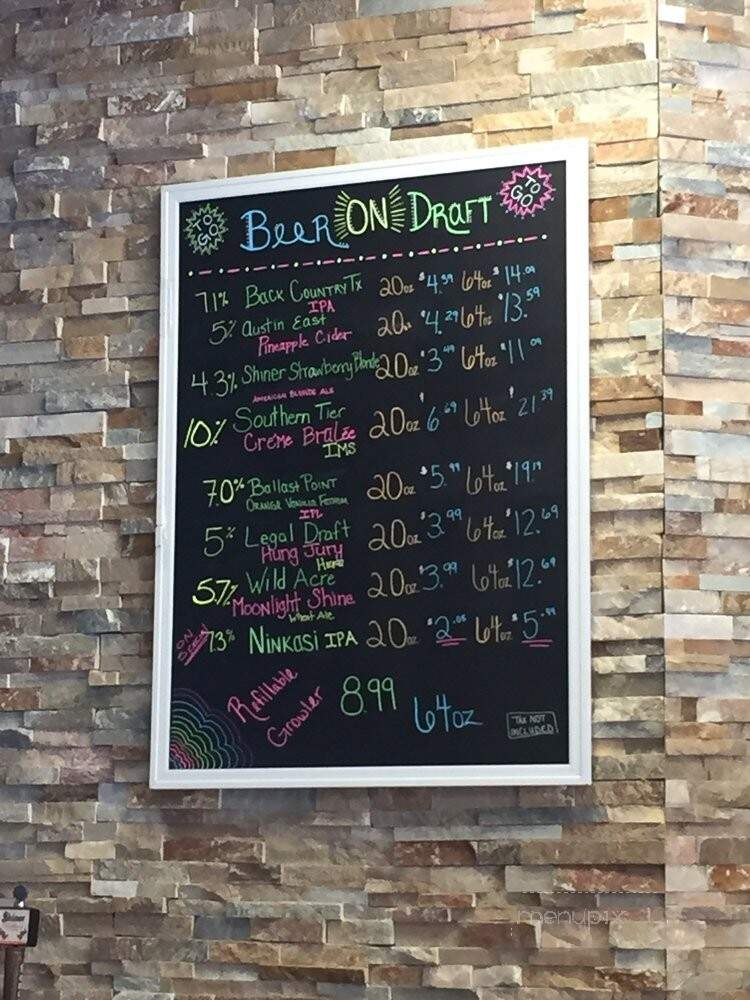 TO GO
Beer ON Draft
TO GO
7.1% Back Country Tx 20oz $4.59 64oz $14.09
IPA
5% Austin East 20oz $4.29 64oz $13.59
Pineapple Cider
4.3% Shiner Strawberry Blonde 20oz $3.49 64oz $11.09
AMERICAN BLONDE ALE
10% Southern Tier 20oz $6.69 64oz $21.39
Créme Brulée
IMS
7.0% Ballast Point 20oz $5.99 64oz $19.19
Orange Vanilla
IPL
5% Legal Draft 20oz $3.99 64oz $12.69
Hung Jury
5.7% Wild Acre 20oz $3.99 64oz $12.69
Moonlight Shine
Wheat Ale
ON
7.3% NINKASI IPA 20oz $2. 64oz $5.
Refillable
Growler
8.99
64oz
TAX NOT
INCLUDED
Shiner
menupix